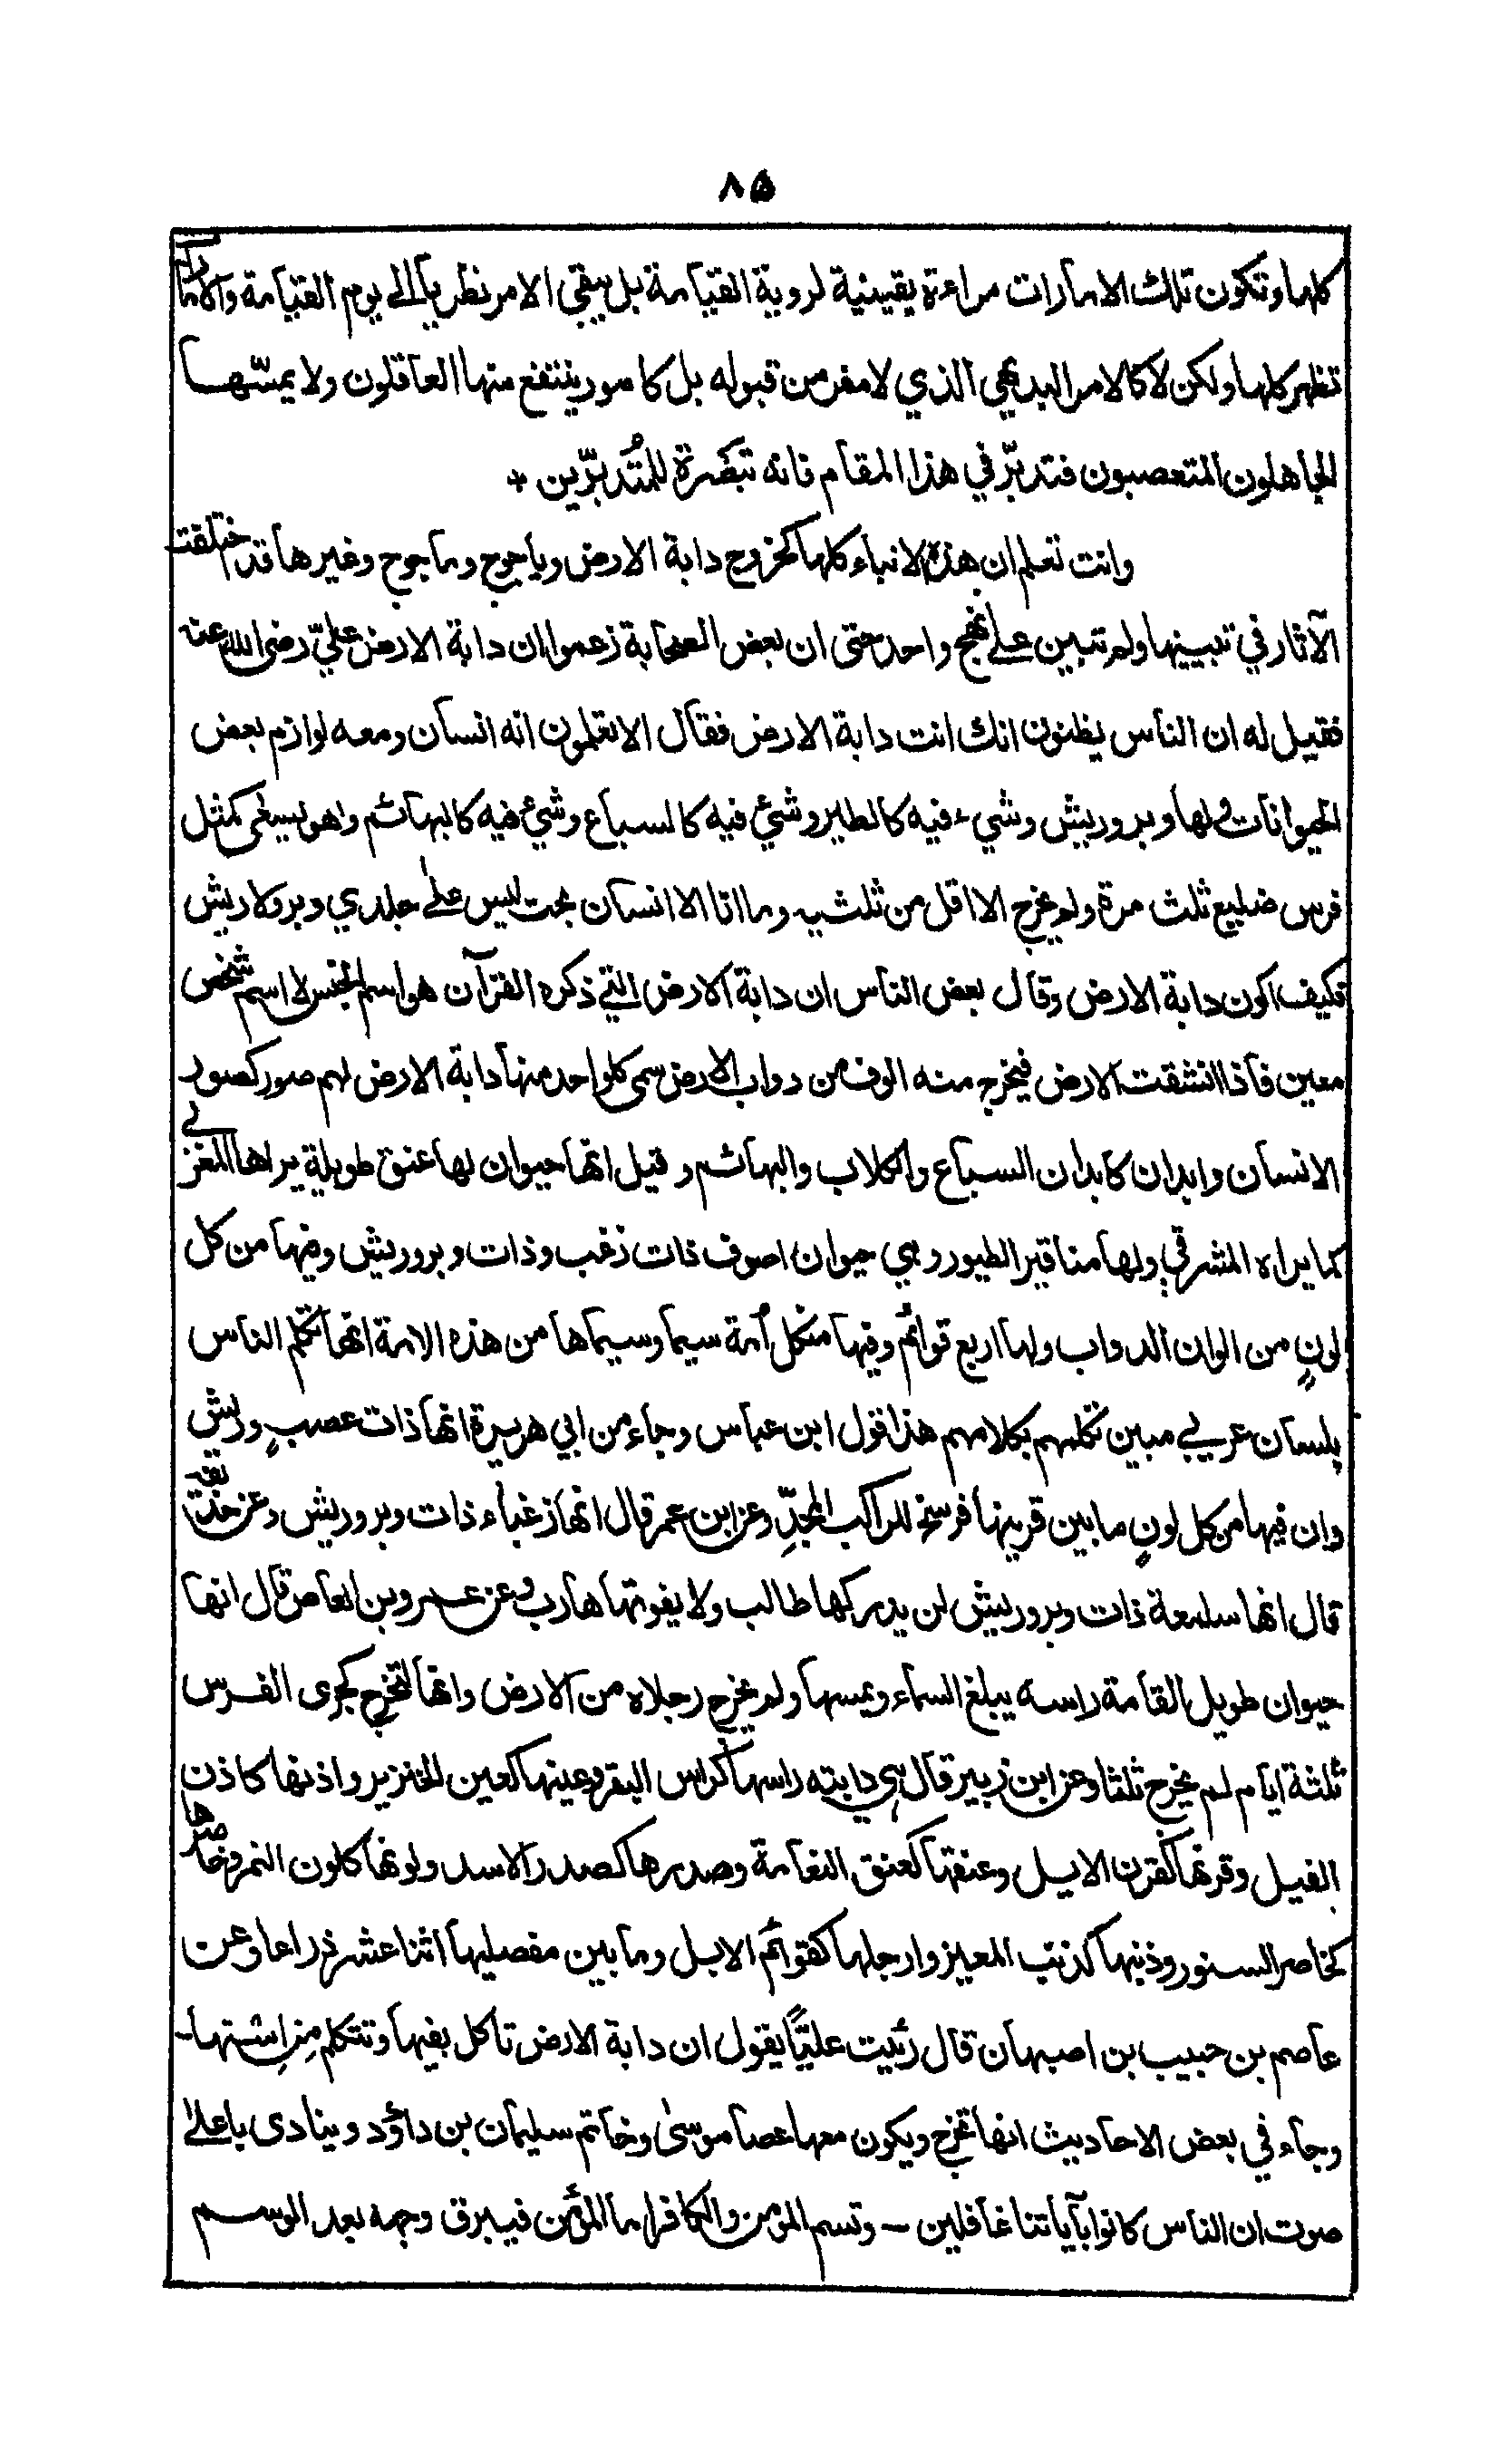 ٨٥
كلها وتكون تلك الامارات مراءة يقينية لروية القيامة بل يبقي الامر نظريا الى يوم القيامة والامارات
تظهر كلها ولكن لا كالامر البديهي الذي لا مفر من قبوله بل كامور ينتفع منها العاقلون ولا يمسّها
الجاهلون المتعصبون فتدبّر في هذا المقام فانه تبصرة للمُتدبّرين +
وانت تعلم ان هذه الانباء كلها كخروج دابة الارض وياجوج وماجوج وغيرها قد اختلفت
الآثار في تبيينها ولم تبين على نهج واحد حتى ان بعض الصحابة زعموا ان دابة الارض عليّ رضى الله عنه
فقيل له ان الناس يظنون انك انت دابة الارض فقال الا تعلمون انه انسان ومعه لوازم بعض
الحيوانات ولها وبر وريش وشيء فيه كالطير وشئ فيه كالسباع وشئ فيه كالبهائم وهو يسعى كمثل
فرس ضليع ثلث مرة ولم يخرج الا اقل من ثلثيه وما انا الا انسان بحت ليس على جلدي وبر ولا ريش
فكيف اكون دابة الارض وقال بعض الناس ان دابة الارض التي ذكره القرآن هو اسم الجنس لا اسم شخص
معين فاذا انشقت الارض فيخرج منه الوف من دواب الارض سمى كل واحد منها دابة الارض لهم صور كصور
الانسان وابدان كابدان السباع والكلاب والبهائم وقيل انها حيوان لها عنق طويلة يراها المغربي
كما يراه المشرقي ولها مناقير الطيور وهي حيوان اصوف ذات زغب وذات وبر وريش وفيها من كل
لونٍ من الوان الدواب ولها اربع قوائم وفيها من كل اُمة سيما وسيماها من هذه الامة انها تكلم الناس
بلسان عربي مبين تكلمهم بكلامهم هذا قول ابن عباس وجاء من ابي هريرة انها ذات عصبٍ وريش
وان فيها من كل لونٍ ما بين قرنيها فرسخ للراكب المجدِّ وعن ابن عمر قال انها زغباء ذات وبر وريش وعن حذيفة
قال انها ملمعة ذات وبر وريش لن يدركها طالب ولا يفوتها هارب وعن عمرو بن العاص قال انها
حيوان طويل القامة راسه يبلغ السماء ويمسها ولم يخرج رجلاه من الارض وانها لتخرج كجرى الفرس
ثلثة ايام لم يخرج ثلثها وعن ابن زبير قال هي دابته راسها كراس البقر وعينها كعين الخنزير واذنها كاذن
الفيل وقرنها كقرن الايل وعنقها كعنق النعامة وصدرها كصدر الاسد ولونها كلون النمر وخاصرها
كخاصر السنور وذنبها كذنب المعيز وارجلها كقوائم الابل وما بين مفصليها اثنا عشر ذراعا وعن
عاصم بن حبيب بن اصبهان قال رئيت عليّاً يقول ان دابة الارض تاكل بفيها وتتكلم مِن اِستها-
وجاء في بعض الاحاديث انها تخرج ويكون معها عصا موسىٰ وخاتم سليمان بن داؤد وينادى باعلىٰ
صوت ان الناس كانوا بآياتنا غافلين - وتسم المؤمن والكافر اما المؤمن فيبرق وجهه بعد الوسم